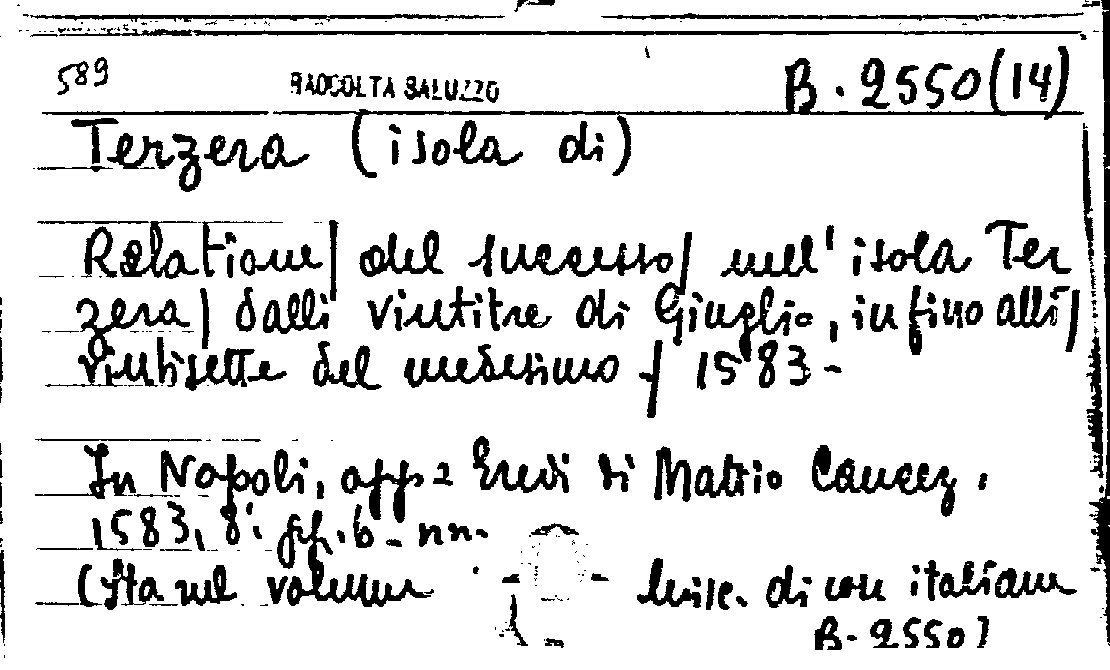 589 RACCOLTA SALUZZO B. 2550 (14)
Terzera (isola di)
Relatione | del successo | nell' isola Ter
zera | dalli vintitre di Giuglio, in fino alli |
vintisette del medesimo - | 1583 -
In Napoli, app. Eredi di Mattio Cancer.
1583, 8°. ff. 6 - nn.
(Sta nel volume Misc. di cose italiane
B. 2550)